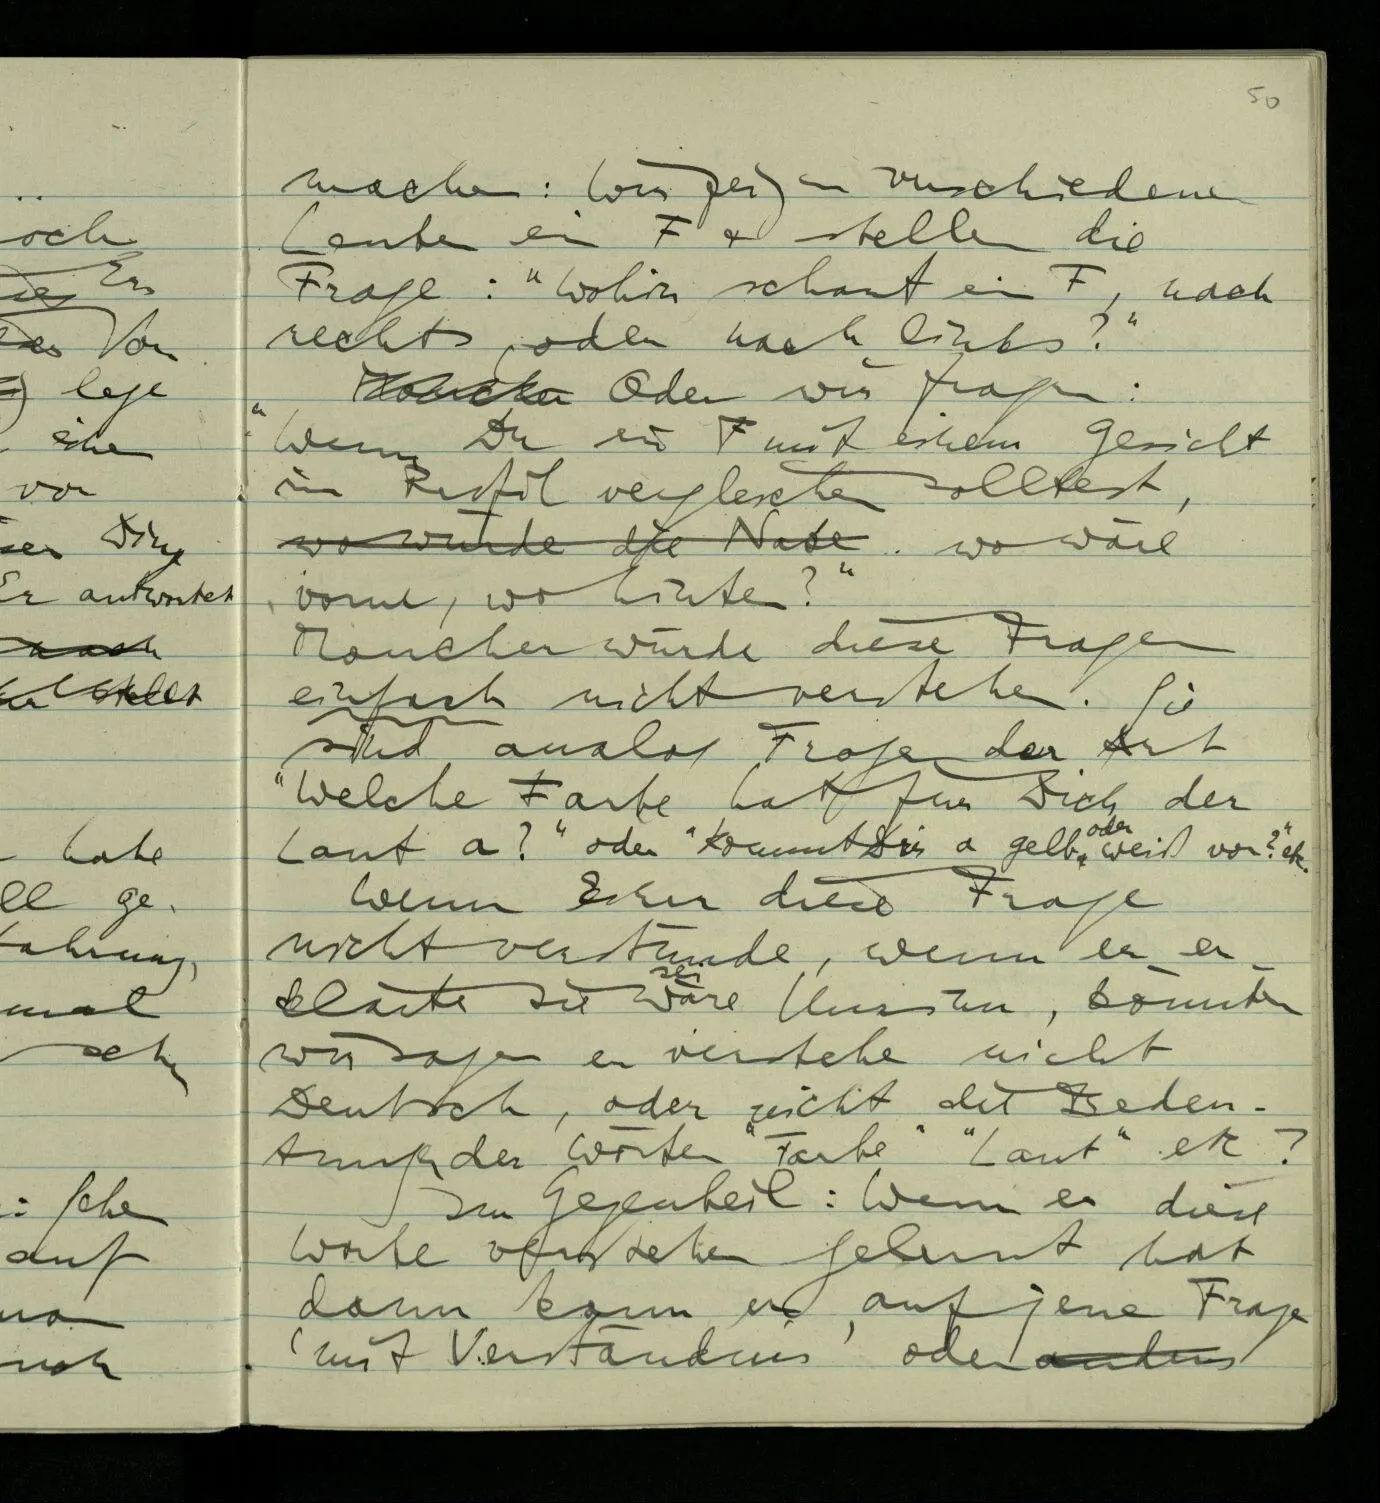 50
och
Er
Von
lege
einen
vor
Ding
Er antwortet
nach
stellt
habe
ll ge-
fahrung,
mal
sch
: sehe
auf
noch
machen: Wir zeigen verschiedenen
Leuten ein F & stellen die
Frage: "Wohin schaut ein F, nach
rechts, oder nach links?"
Oder wir fragen:
"Wenn Du ein F mit einem Gesicht
im Profil vergleichen solltest,
wo würde die Nase. wo wäre
vorne, wo hinten?"
Mancher würde diese Fragen
einfach nicht verstehen. Sie
sind analog Fragen der Art
"Welche Farbe hat für Dich der
Laut a?" oder "kommt Dir a gelb, oder weiß vor?" etc.
Wenn Einer diese Frage
nicht verstünde, wenn er er-
klärte sie wäre sei Unsinn, könnten
wir sagen er verstehe nicht
Deutsch, oder nicht die Bedeu-
tung der Wörter "Farbe" "Laut" etc?
Im Gegenteil: Wenn er diese
Worte verstehen gelernt hat
dann kann er auf jene Frage
'mit Verständnis' oder anders